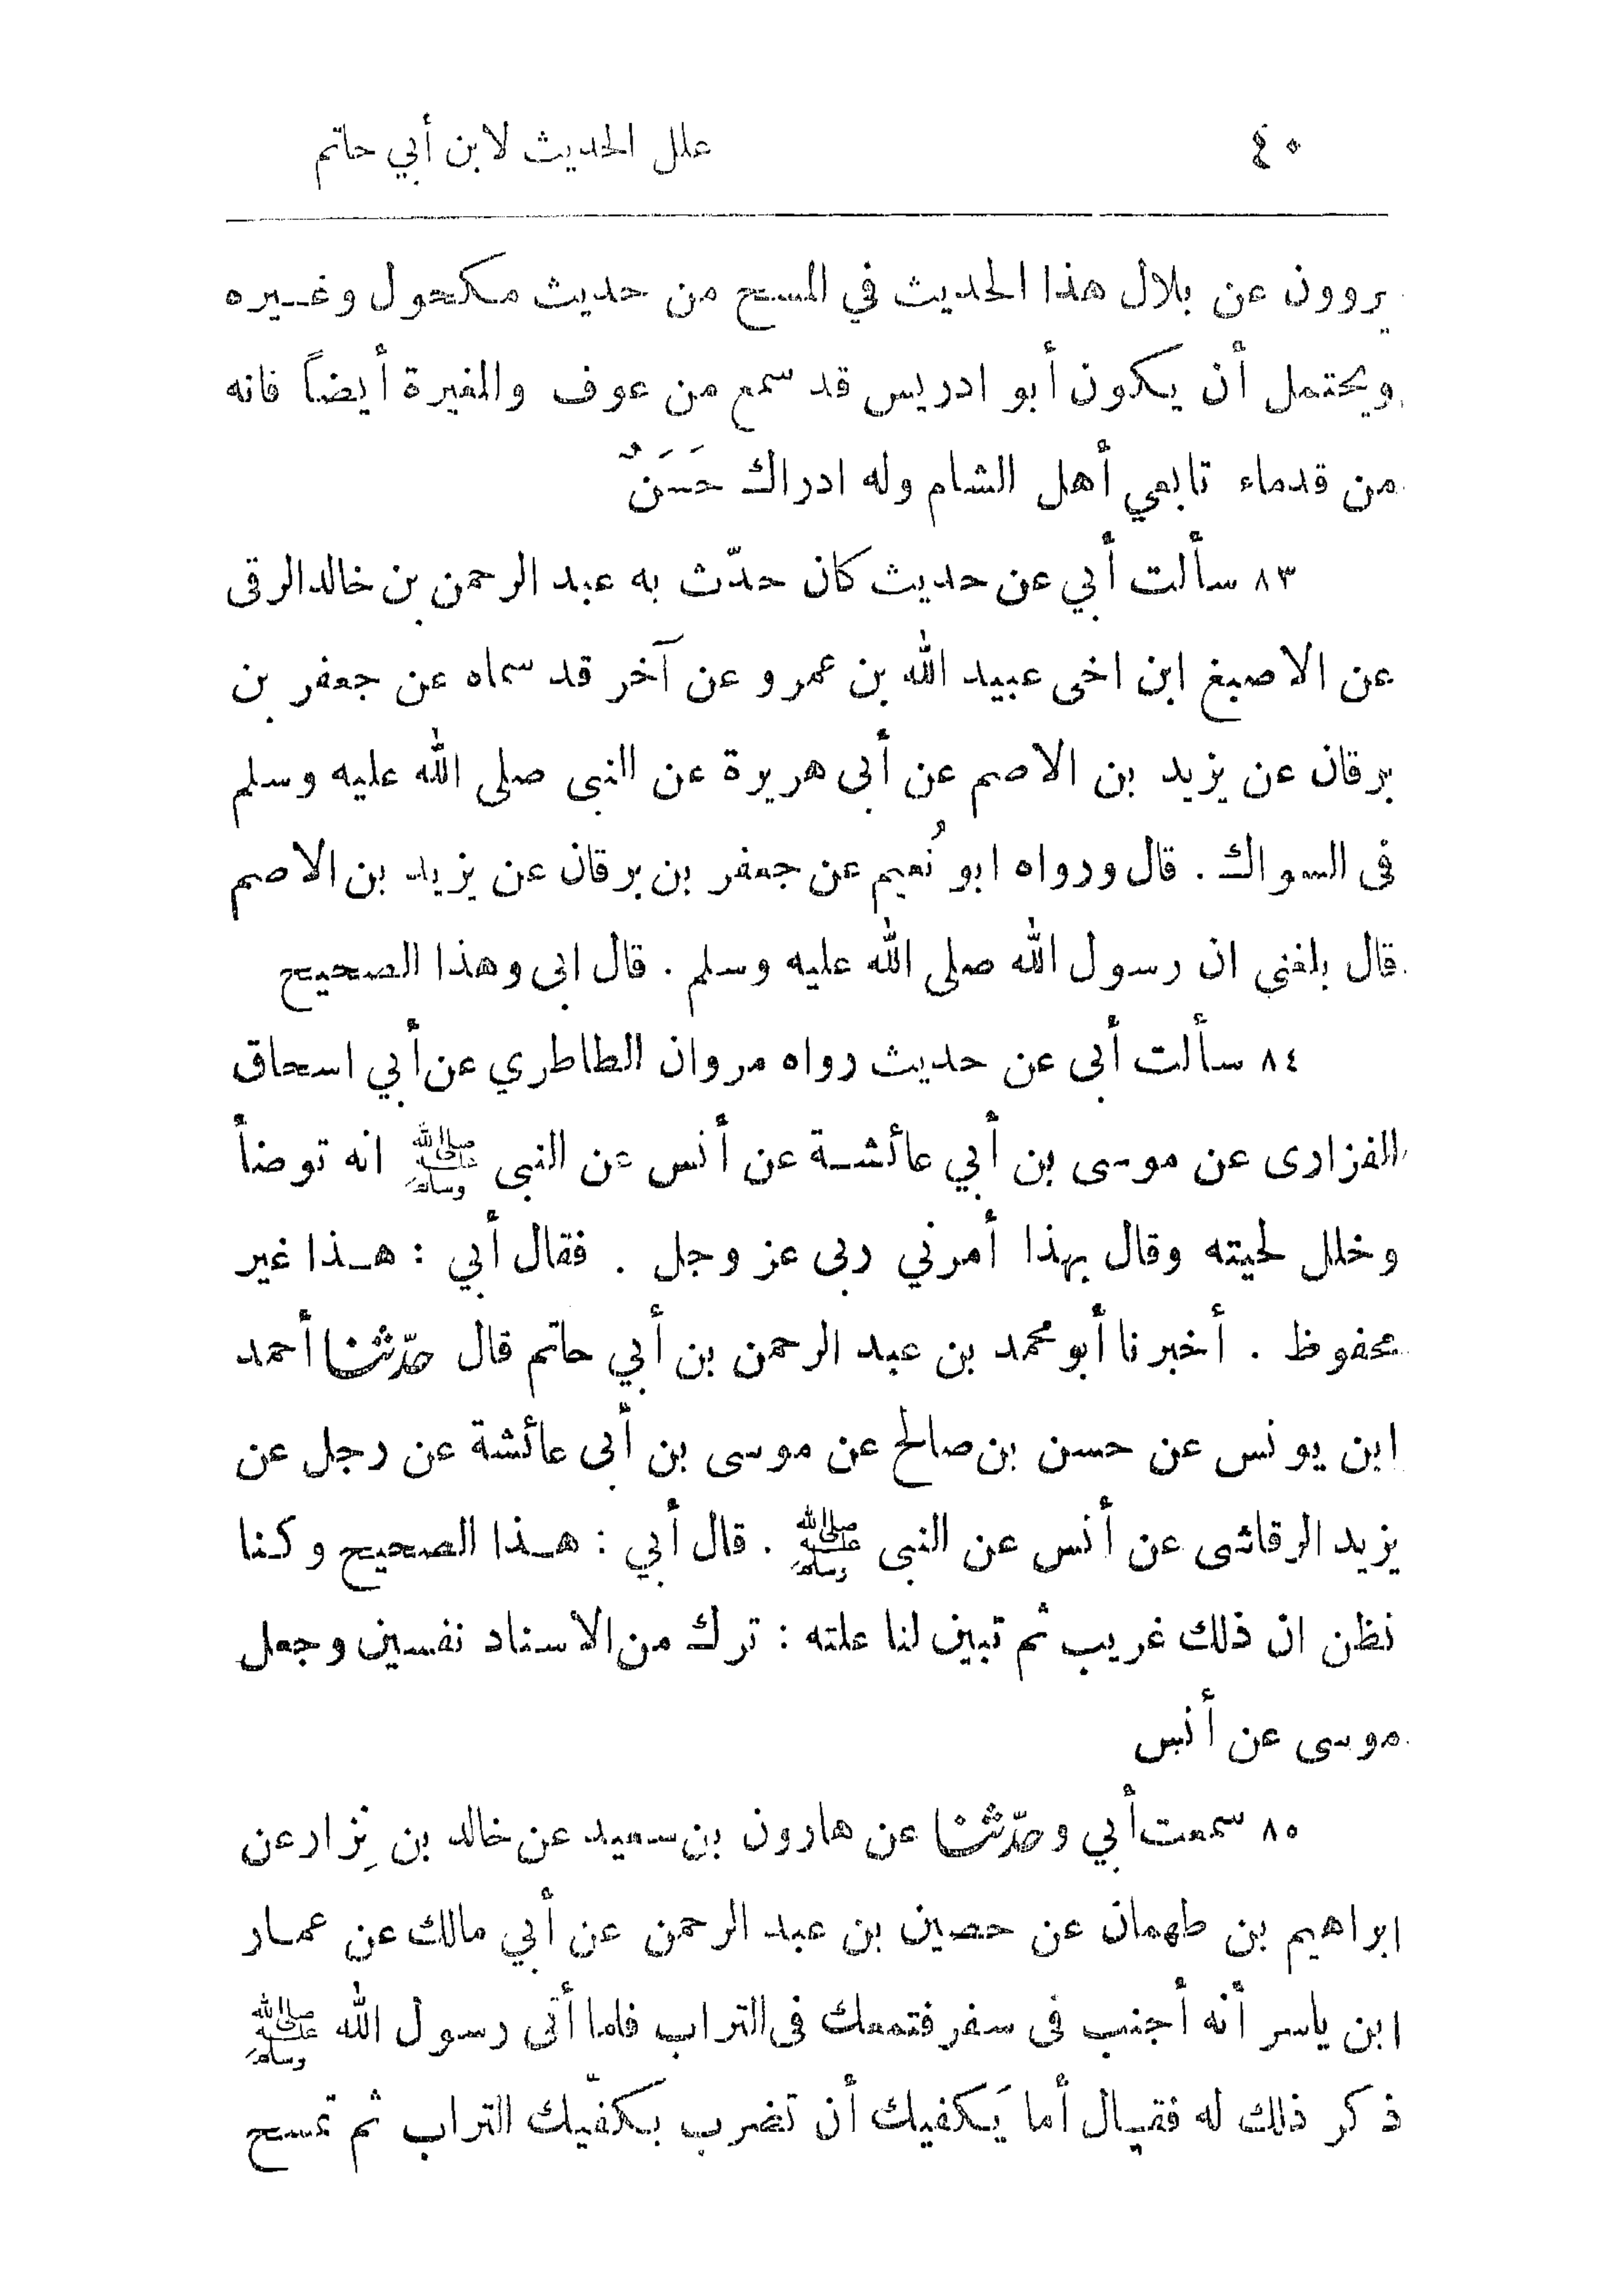 ٤٠ علل الحديث لابن أبي حاتم
يروون عن بلال هذا الحديث في المسح من حديث مكحول وغيره
ويحتمل أن يكون أبو ادريس قد سمع من عوف والمغيرة أيضاً فانه
من قدماء تابعي أهل الشام وله ادراك حَسَنٌ
٨٣ سألت أبي عن حديث كان حدّث به عبد الرحمن بن خالد الرقى
عن الاصبغ ابن اخى عبيد الله بن عمرو عن آخر قد سماه عن جعفر بن
برقان عن يزيد بن الاصم عن أبى هريرة عن النبى صلى الله عليه وسلم
فى السواك . قال ورواه ابو نُعيم عن جعفر بن برقان عن يزيد بن الاصم
قال بلغني ان رسول الله صلى الله عليه وسلم . قال ابى وهذا الصحيح
٨٤ سألت أبى عن حديث رواه مروان الطاطري عن أبي اسحاق
الفزارى عن موسى بن أبي عائشة عن أنس عن النبى ﷺ انه توضأ
وخلل لحيته وقال بهذا أمرني ربى عز وجل . فقال أبي : هذا غير
محفوظ . أخبرنا أبو محمد بن عبد الرحمن بن أبي حاتم قال حدّثنا أحمد
ابن يونس عن حسن بن صالح عن موسى بن أبى عائشة عن رجل عن
يزيد الرقاشى عن أنس عن النبى ﷺ . قال أبي : هذا الصحيح وكنا
نظن ان ذلك غريب ثم تبين لنا علته : ترك من الاسناد نفسين وجعل
موسى عن أنس
٨٥ سمعت أبي وحدّثنا عن هارون بن سعيد عن خالد بن نِزار عن
ابراهيم بن طهمان عن حصين بن عبد الرحمن عن أبي مالك عن عمار
ابن ياسر أنه أجنب فى سفر فتمعك فى التراب فلما أتى رسول الله ﷺ
ذكر ذلك له فقال أما يَكفيك أن تضرب بكفّيك التراب ثم تمسح